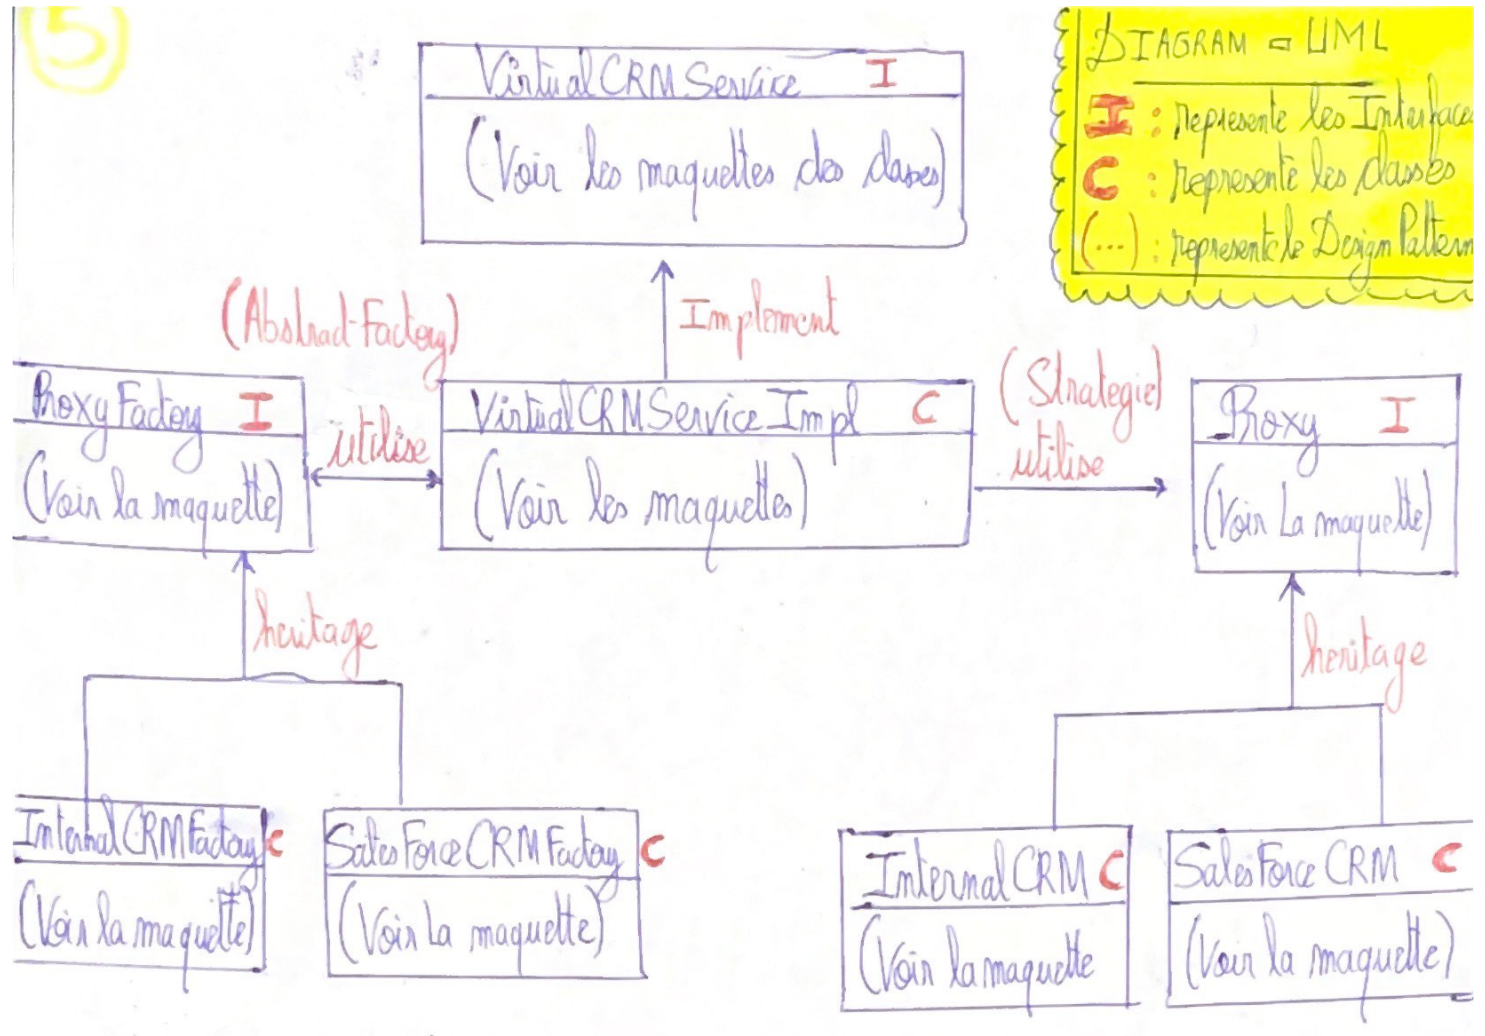 5
DIAGRAM UML
I : represente les Interfaces
C : represente les classes
(...) : represente le Design Pattern
VirtualCRMService I
(Voir les maquettes des classes)
Implement
(Abstract-Factory)
utilise
(Strategie)
utilise
ProxyFactory I
(Voir la maquette)
VirtualCRMServiceImpl C
(Voir les maquettes)
Proxy I
(Voir La maquette)
heritage
heritage
InternalCRMFactory C
(Voir la maquette)
SalesForceCRMFactory C
(Voir La maquette)
InternalCRM C
(Voir la maquette
SalesForceCRM C
(Voir la maquette)